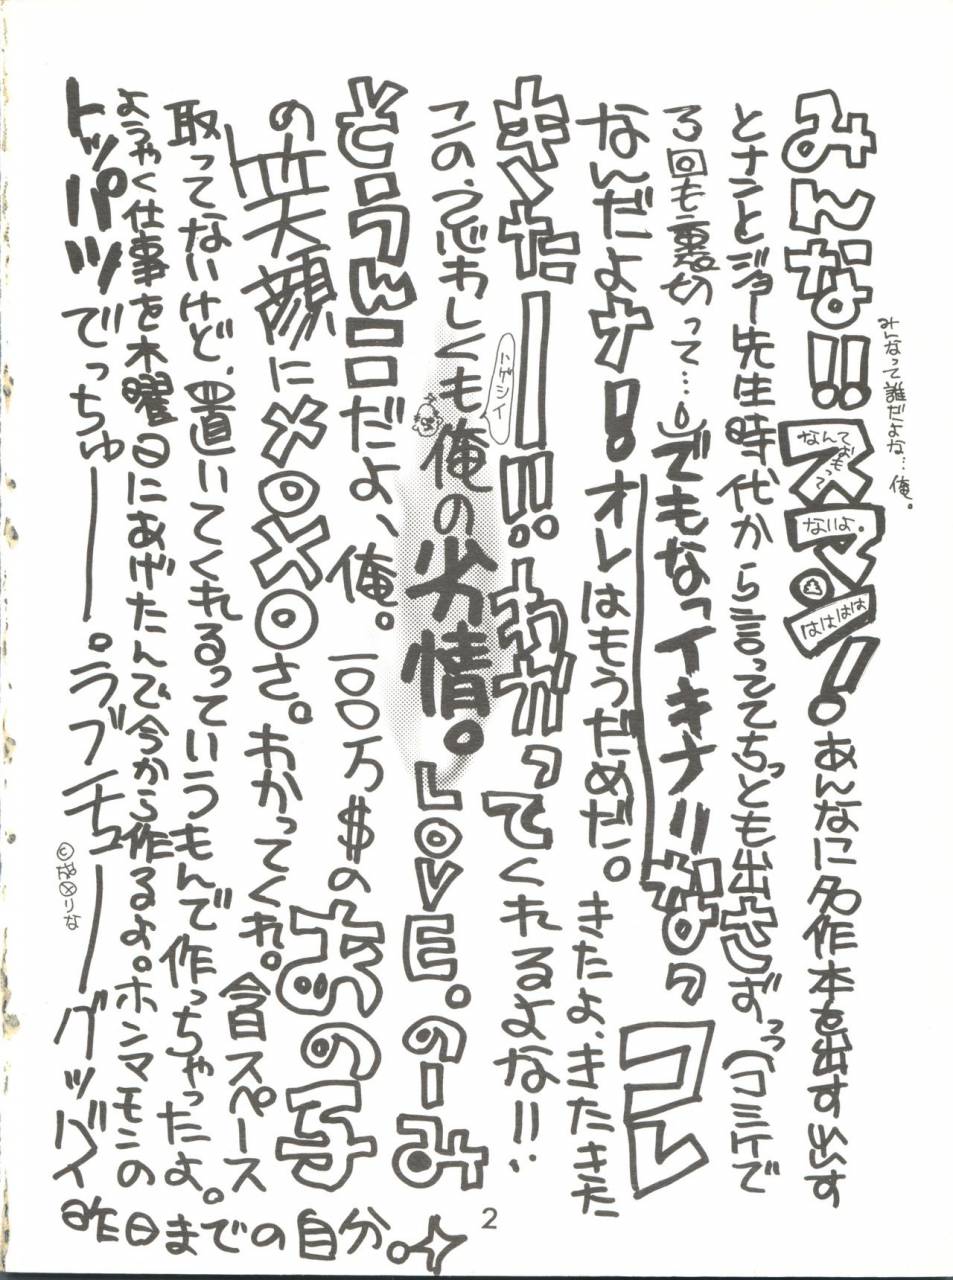 みんな!!スマン!あんなに名作本を出す出す
みんなって誰だよな…俺。
なんて
おもって
ないよ。
はははは
とナンとジョー先生時代から言っててちっとも出さずっっ(コミケで
る回も裏切って…でもなっイキナリなのっコレ
なんだよナ!オレはもうだめだ。きたよ、きたきた
きたーー!!わかってくれるよな!!
トゲシイ
この、忌わしくも俺の劣情。LOVE。のーみ
そうんこだよ、俺。一〇〇万$のあの子
の笑顔にメロメロさ。わかってくれ。今日スペース
取ってないけど、置いてくれるっていうもんで作っちゃったよ。
ようやく仕事を木曜日にあげたんで今から作るよ。ホンマモンの
トッパツでっちゅーー。ラブチューーグッバイ
昨日までの自分。
2